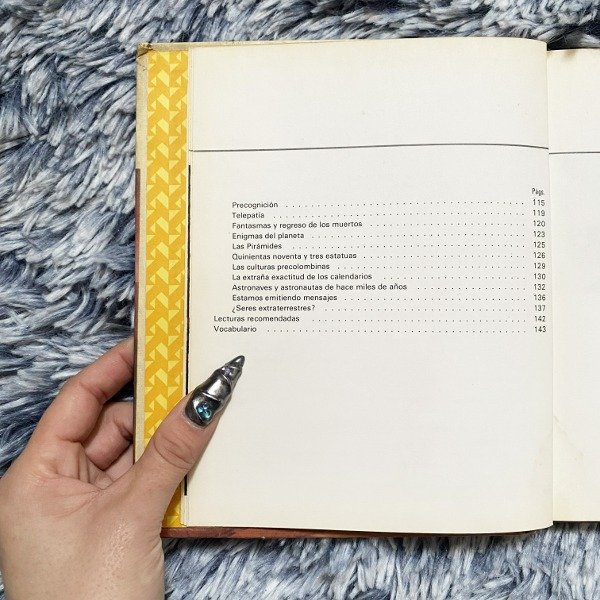 Págs.
Precognición 115
Telepatía 119
Fantasmas y regreso de los muertos 120
Enigmas del planeta 123
Las Pirámides 125
Quinientas noventa y tres estatuas 126
Las culturas precolombinas 129
La extraña exactitud de los calendarios 130
Astronaves y astronautas de hace miles de años 132
Estamos emitiendo mensajes 136
¿Seres extraterrestres? 137
Lecturas recomendadas 142
Vocabulario 143